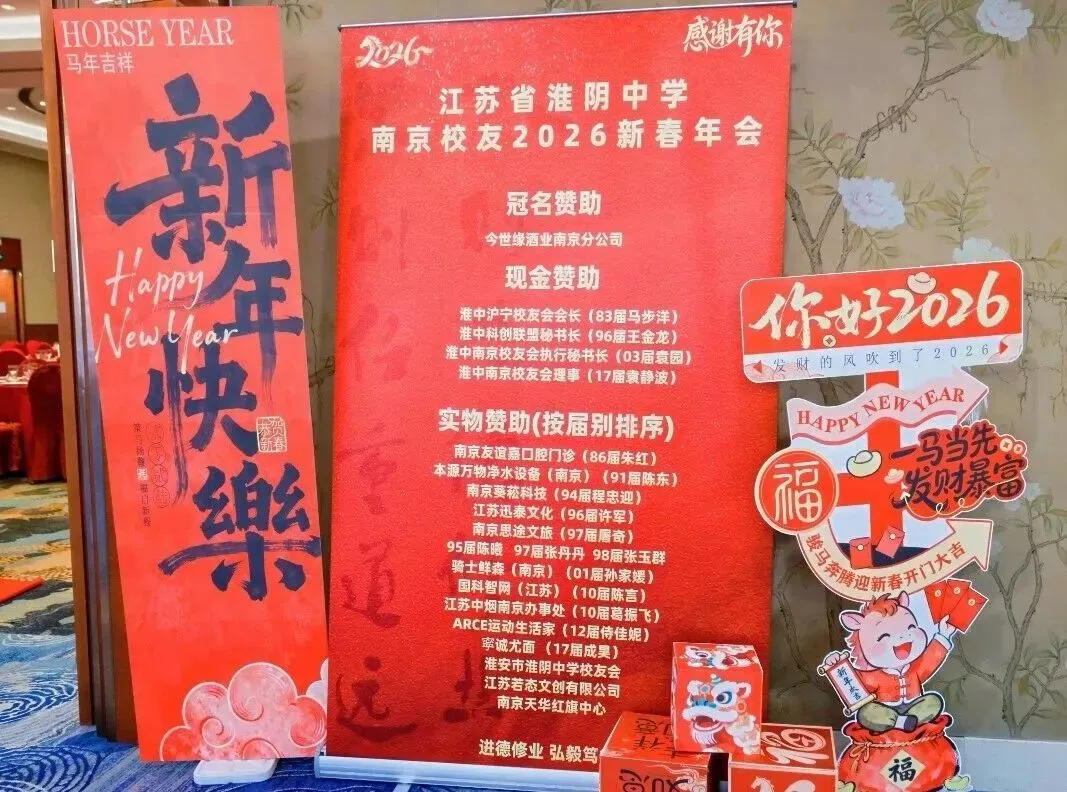 HORSE YEAR
马年吉祥
新年快樂
Happy
New Year
恭贺
新春
2026
感谢有你
江苏省淮阴中学
南京校友2026新春年会
冠名赞助
今世缘酒业南京分公司
现金赞助
淮中沪宁校友会会长（83届马步洋）
淮中科创联盟秘书长（96届王金龙）
淮中南京校友会执行秘书长（03届袁园）
淮中南京校友会理事（17届袁静波）
实物赞助(按届别排序)
南京友谊嘉口腔门诊（86届朱红）
本源万物净水设备（南京）（91届陈东）
南京葵菘科技（94届程忠迎）
江苏迅泰文化（96届许军）
南京思途文旅（97届屠奇）
95届陈曦 97届张丹丹 98届张玉群
骑士鲜森（南京）（01届孙家媛）
国科智网（江苏）（10届陈言）
江苏中烟南京办事处（10届葛振飞）
ARCE运动生活家（12届侍佳妮）
寜诚尤面（17届成昊）
淮安市淮阴中学校友会
江苏若态文创有限公司
南京天华红旗中心
进德修业 弘毅笃
任重道远
你好2026
发财的风吹到了2026
HAPPY NEW YEAR
一马当先
发财暴富
福
骏马奔腾迎新春开门大吉
新年大吉
福
吉祥
如意